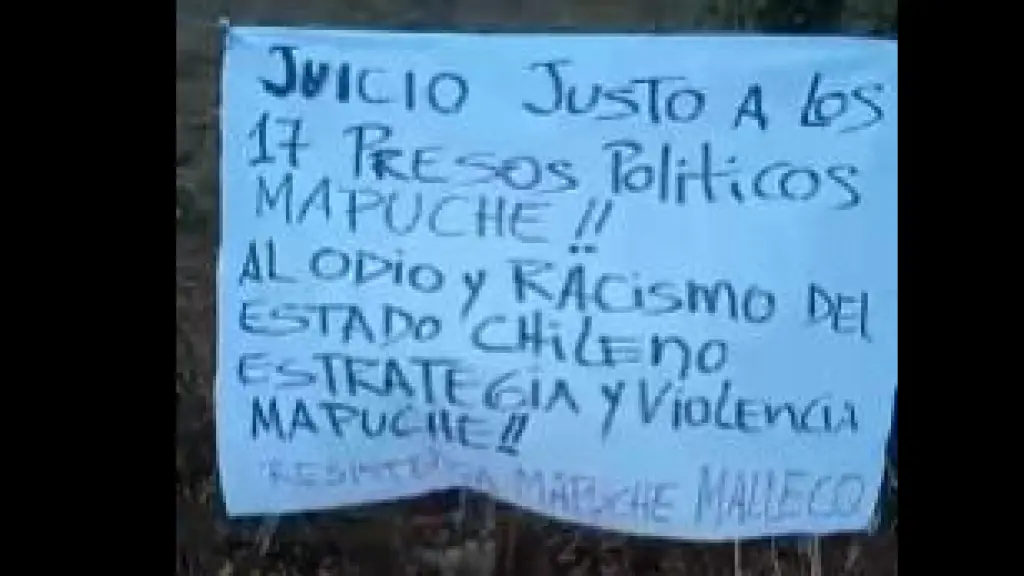 JUICIO JUSTO A LOS
17 PRESOS POLITICOS
MAPUCHE !!
AL ODIO Y RACISMO DEL
ESTADO CHILENO
ESTRATEGIA Y VIOLENCIA
MAPUCHE!!
RESISTENCIA MAPUCHE MALLECO